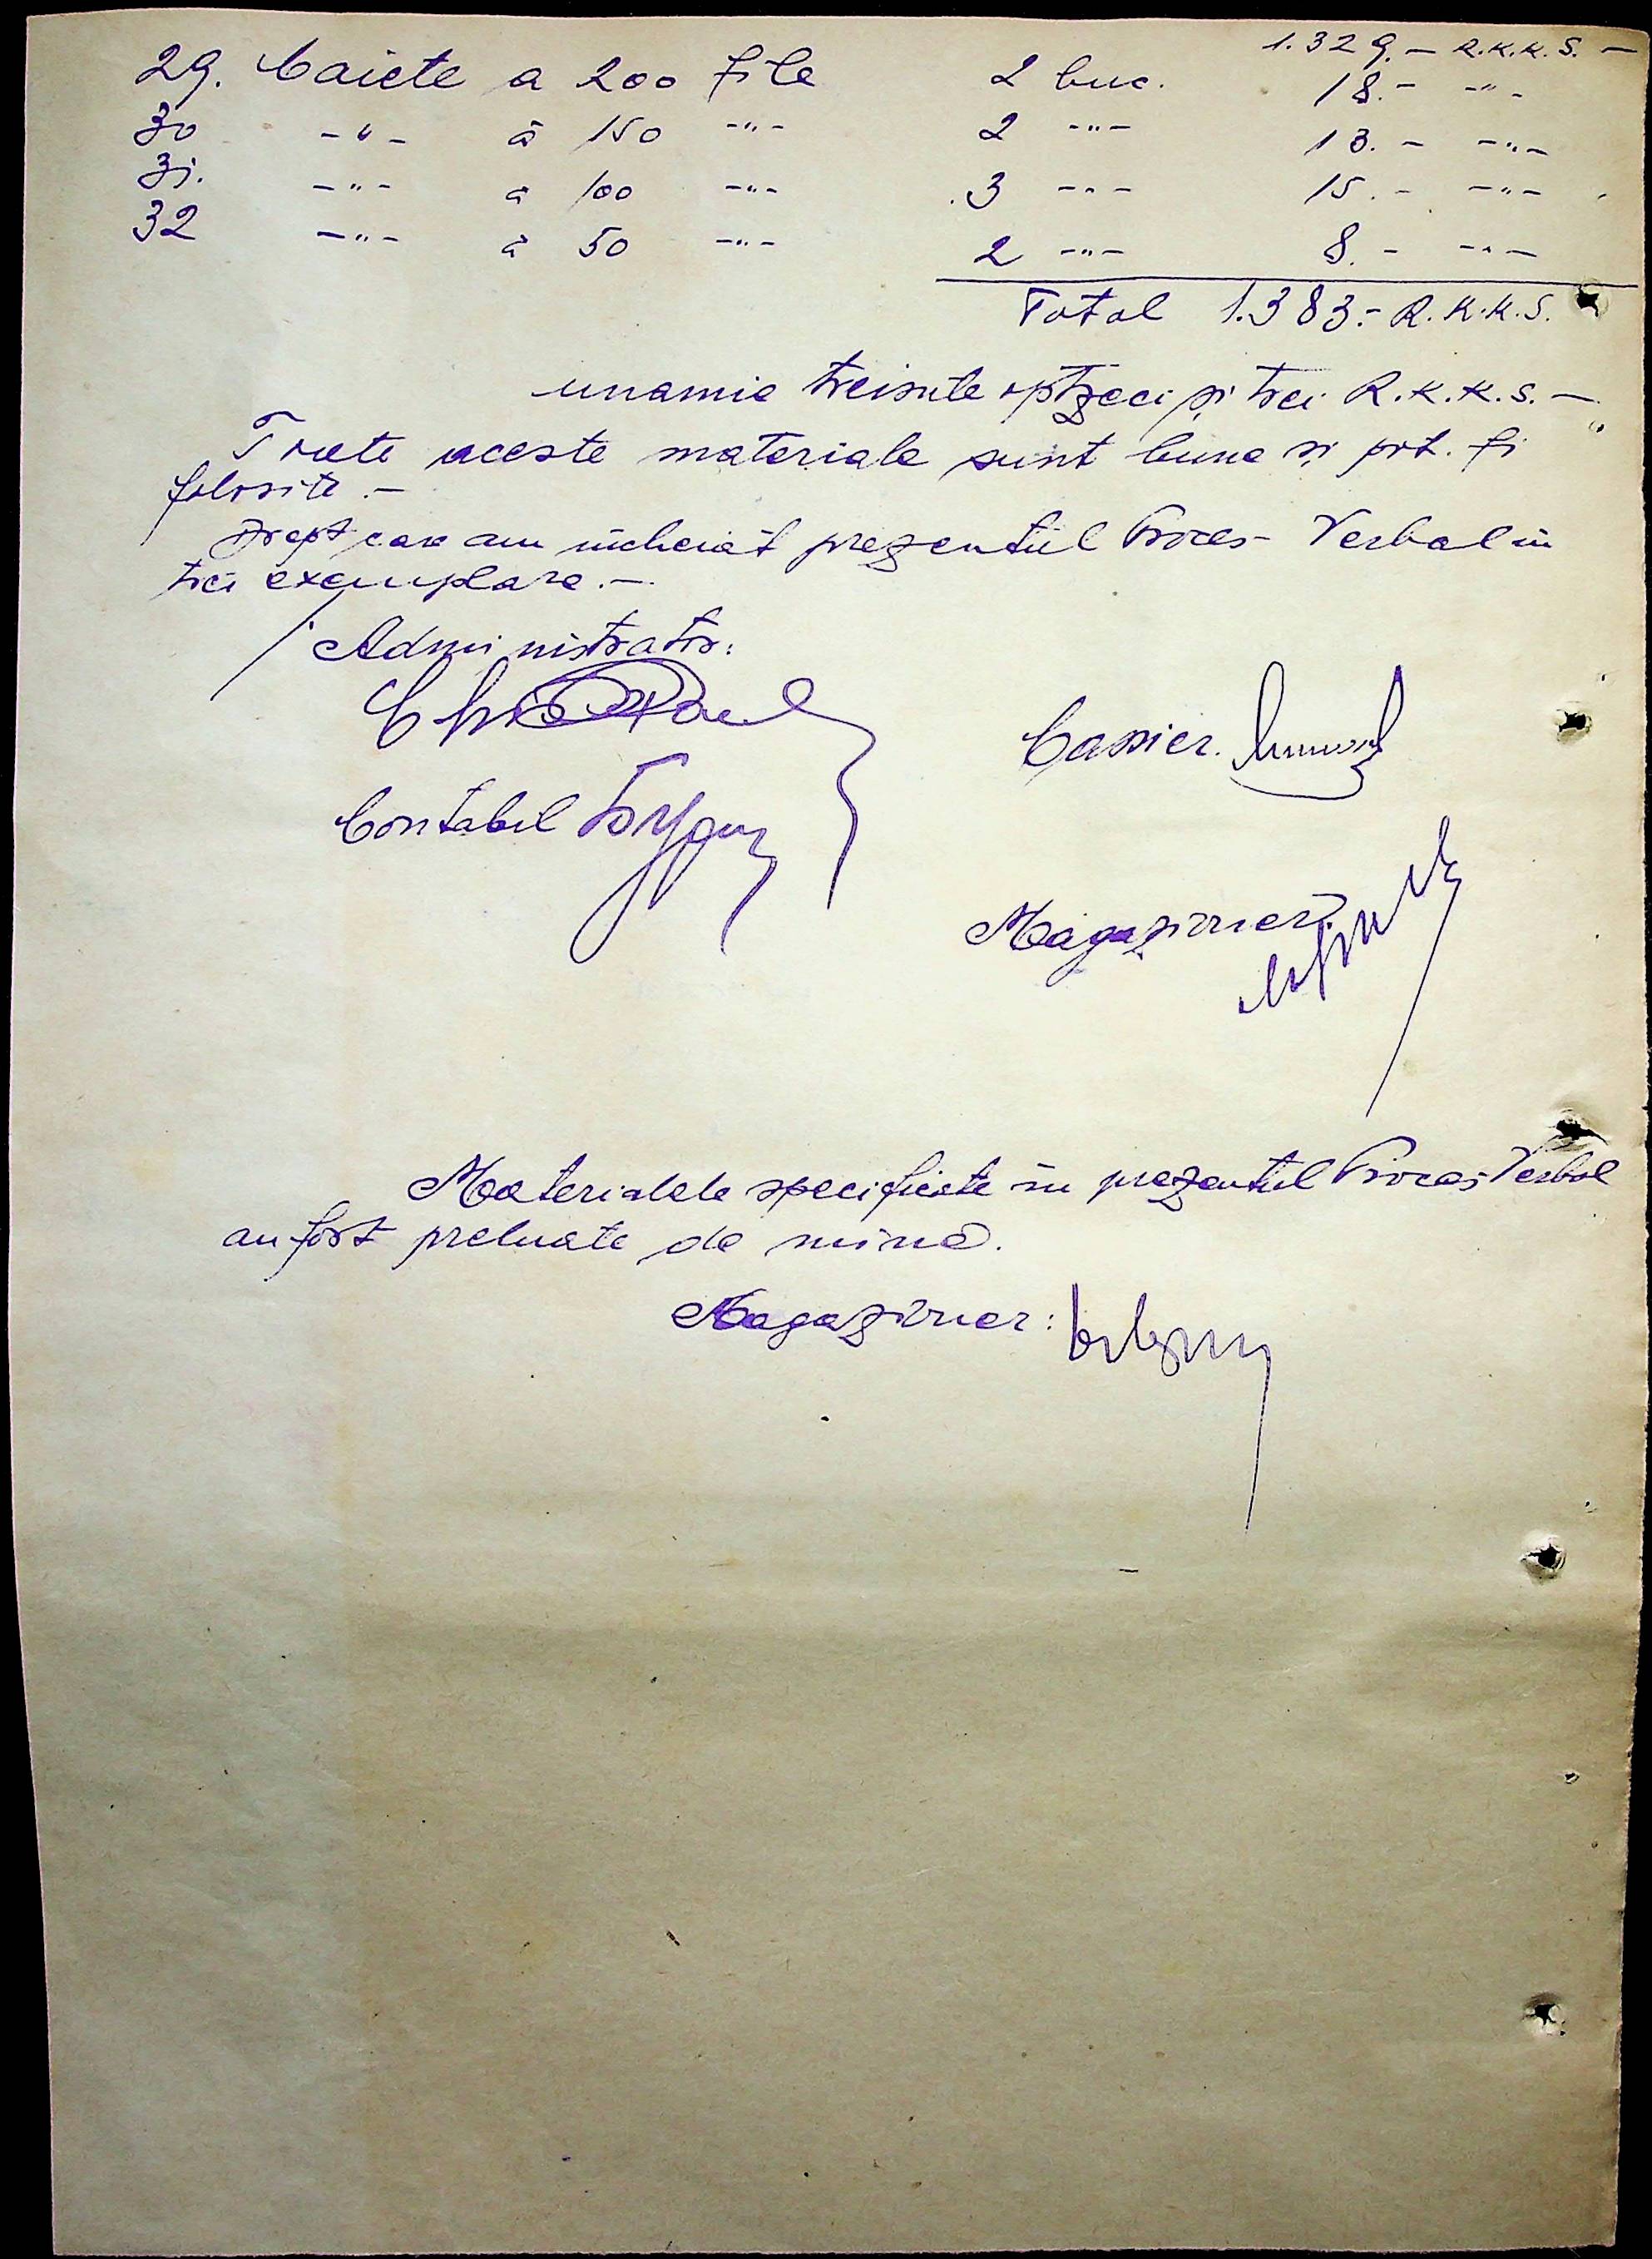 1.329.- R.K.K.S. -
29. Caiete a 200 file 2 buc. 18.- -"-
30 -"- à 150 -"- 2 -"- 13.- -"-
31. -"- à 100 -"- 3 -"- 15.- -"-
32 -"- à 50 -"- 2 -"- 8.- -"-
Total 1.383.- R.K.K.S.
unamie treisute optzeci și trei R.K.K.S. -
Toate aceste materiale sunt bune și pot. fi
folosite.-
Drept care am încheiat prezentul Proces-Verbal în
trei exemplare.-
Administrator:
Cassier.
Contabil
Magazioner:
Materialele specificate în prezentul Proces-Verbal
au fost preluate de mine.
Magazioner: